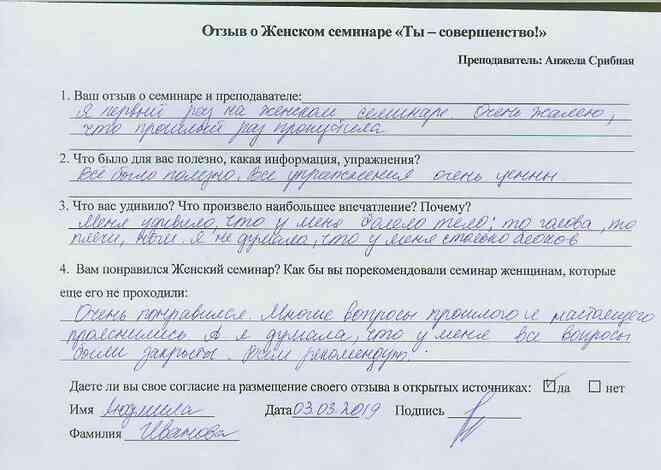 Отзыв о Женском семинаре «Ты – совершенство!»
Преподаватель: Анжела Срибная
1. Ваш отзыв о семинаре и преподавателе:
Я первый раз на женском семинаре. Очень жалею,
что прошлый раз пропустила
2. Что было для вас полезно, какая информация, упражнения?
Всё было полезно. Все упражнения очень ценны.
3. Что вас удивило? Что произвело наибольшее впечатление? Почему?
Меня удивило, что у меня болело тело; то голова, то
плечи, ноги. Я не думала, что у меня столько блоков
4. Вам понравился Женский семинар? Как бы вы порекомендовали семинар женщинам, которые
еще его не проходили:
Очень понравился. Многие вопросы прошлого и настоящего
прояснились А я думала, что у меня все вопросы
были закрыты. Всем рекомендую.
Даете ли вы свое согласие на размещение своего отзыва в открытых источниках: да нет
Имя Людмила Дата 03.03.2019 Подпись
Фамилия Иванова